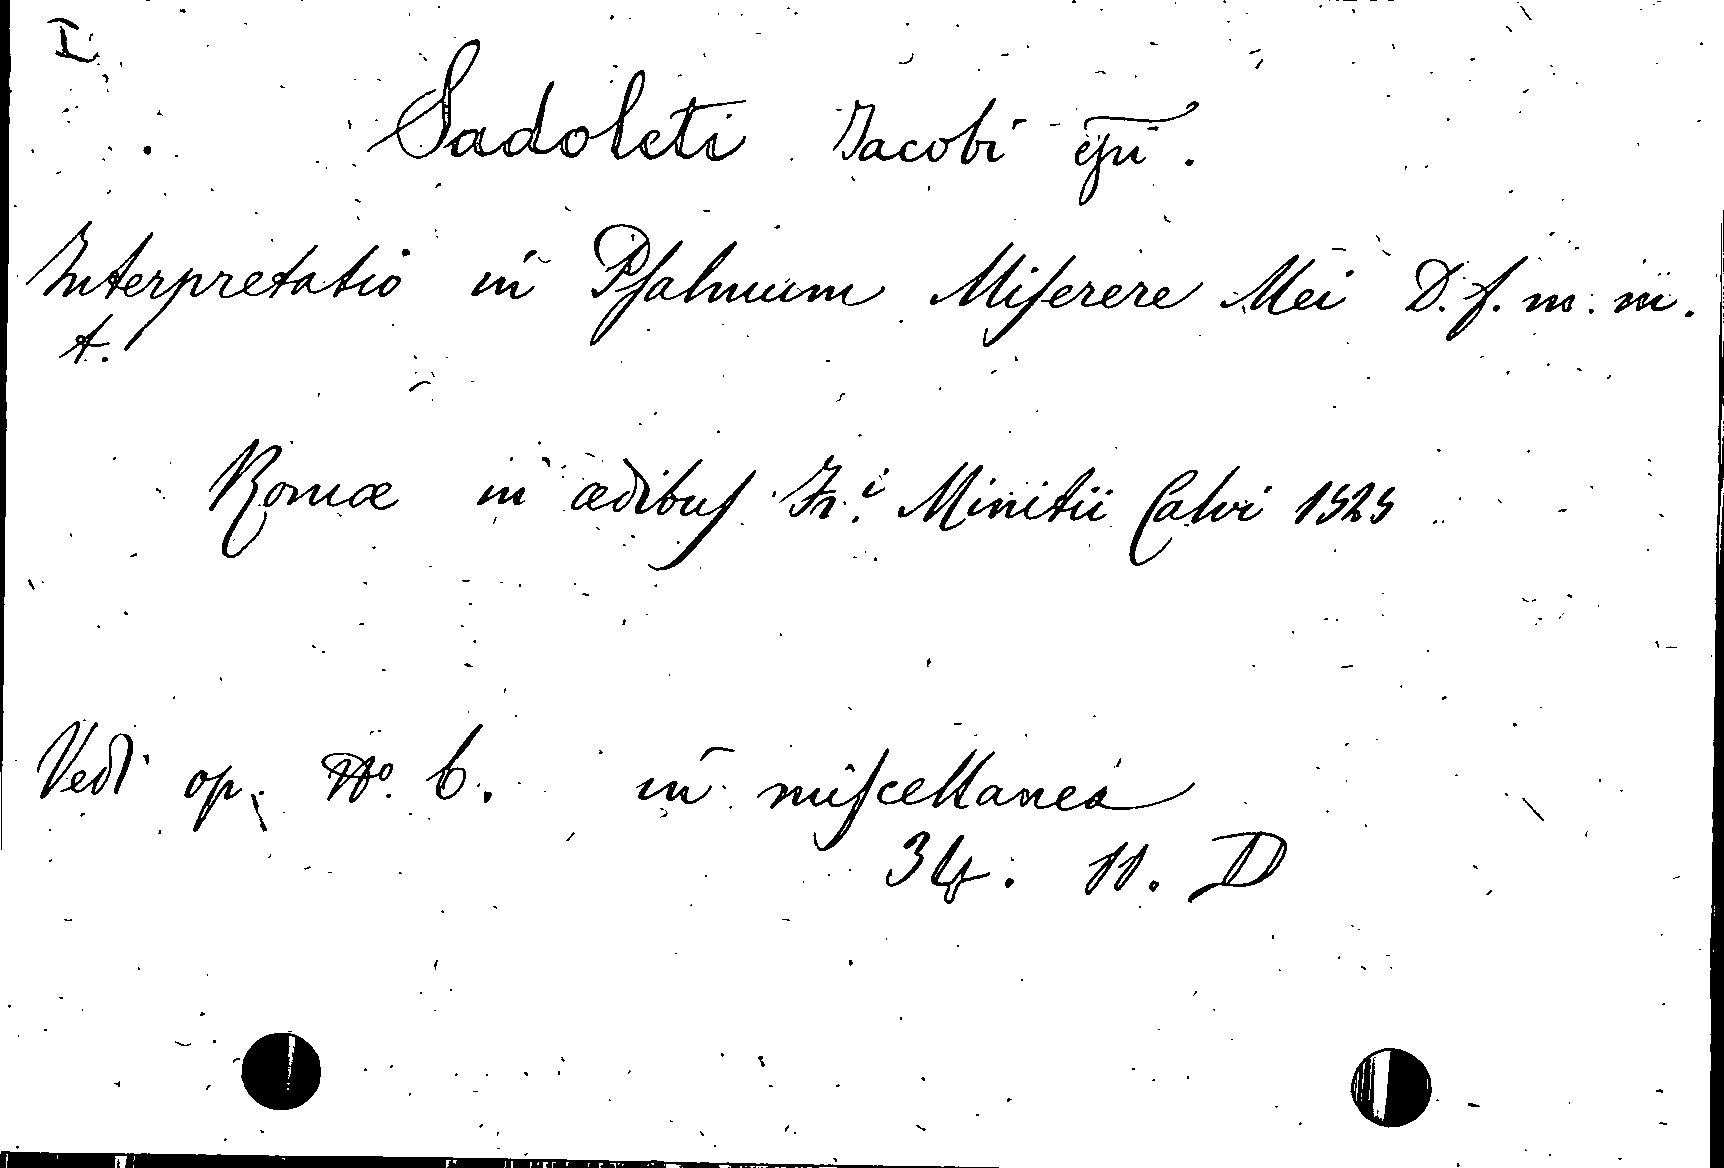 I.
Sadoleti Jacobi epi.
Interpretatio in Psalmum Miserere Mei D. s. m. m.
t.
Romæ in ædibus Fr.i Minitii Calvi 1525
Vedi op. No. 6. in miscellanea
34. 11. D